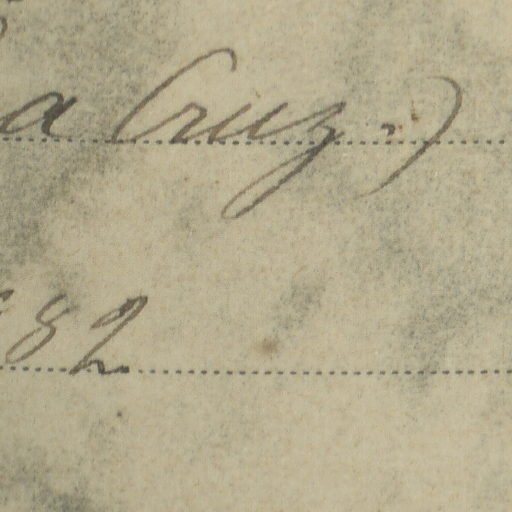 a Cruz.)
82